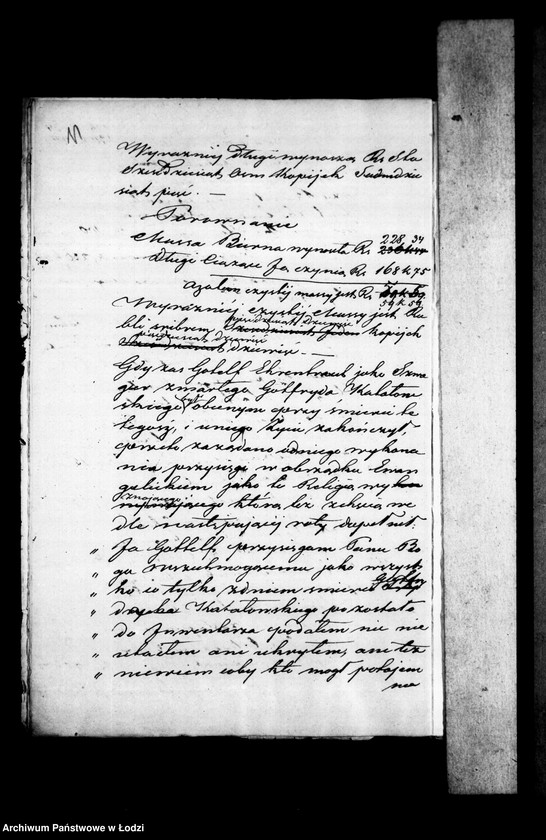 Wyraźniej Długi wynoszą Rs Sto
Sześdziesiąt osm kopijek Siedmdzie
siąt pięć. —
Porównanie
Massa Bierna wynosi Rs 228. 34
Długi Ciążące Ją czynią Rs 168 k 75
azatem czystej massy jest Rs
59 k 59
Wyraźniej czystej Massy jest Ru
bli srebrem pięćdziesiąt dziewięć kopijek
pięćdziesiąt dziewięć dziewięć. —
Gdy zaś Gotelf Ehrentraut jako Szwa
gier zmarłego Gottfryda Kałatow
skiego był obecnym przy śmierci te
tegoż, i u niego życie zakończył
przeto zażądano od niego wykona
nia przysięgi w obrządku Ewan
gelickim jako te Religią wy
znającego którą też złożył we
dle następującej roty dosetnst.
„ Ja Gottelf przysięgam Panu Bo
„ gu wszechmogącemu jako wszyst
„ ko co tylko z dniem śmierci Gottfry
„ dryda Kałatowskiego pozostało
„ do Inwentarza podałem nic nie
„ utaiłem ani ukryłem, ani też
„ niewiem coby kto mógł potajem
nie
Archiwum Państwowe w Łodzi